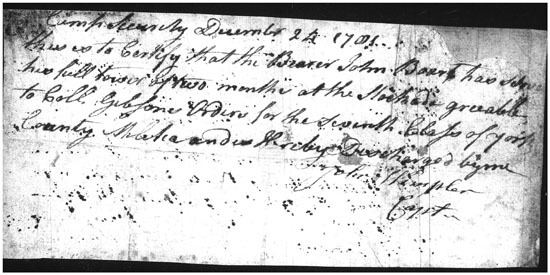 Camp Security December 24 1781
this is to Certify that the Bearer John has
his full tower of two months at the Stockade greeable
to Coll Gibsons Orders for the Seventh Class of york
County Malitia and is Hereby Discharged by me
John
Capt